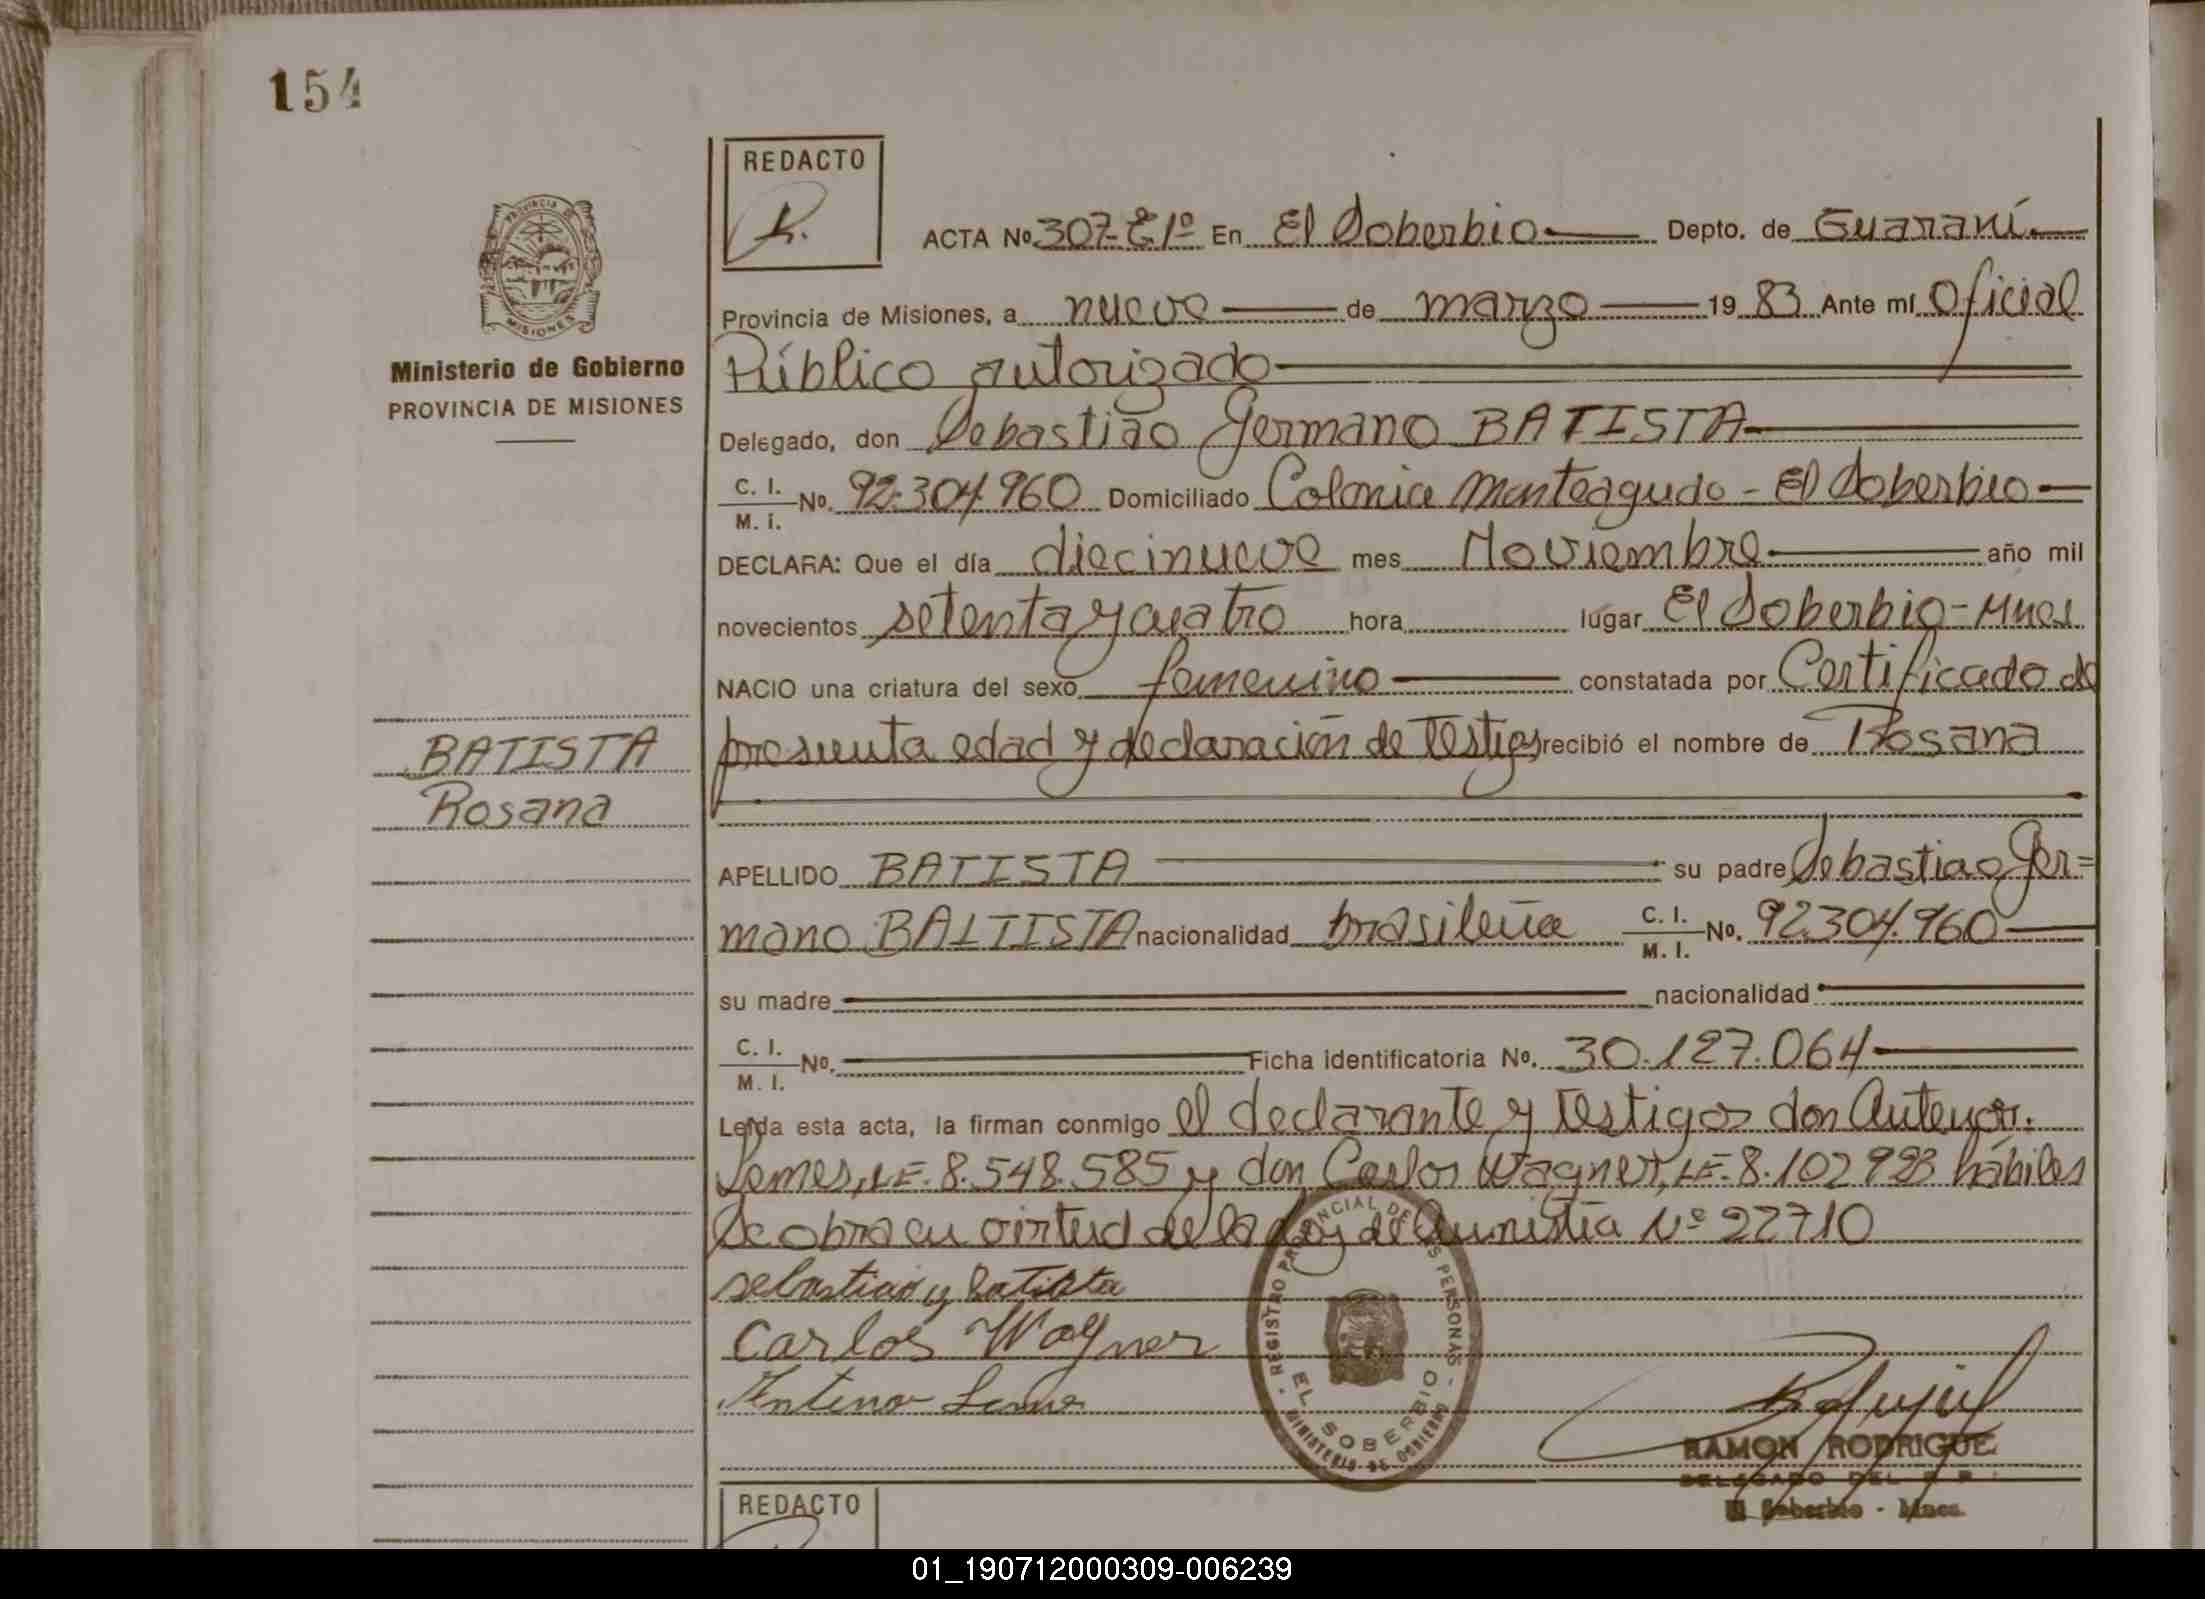 154
REDACTO
ACTA Nº 307- E1º En El Soberbio Depto. de Guaraní
Provincia de Misiones, a nueve de marzo 19 83 Ante mí Oficial
Público autorizado
Ministerio de Gobierno
PROVINCIA DE MISIONES
Delegado, don Sebastião Germano BATISTA
C. I. M. I. No. 92.304.960 Domiciliado Colonia Monteagudo - El Soberbio
DECLARA: Que el día diecinueve mes Noviembre año mil
novecientos setenta y cuatro hora lugar El Soberbio - Mnes
NACIO una criatura del sexo femenino constatada por Certificado de
presunta edad y declaración de testigos recibió el nombre de Rosana
BATISTA
Rosana
APELLIDO BATISTA su padre Sebastiao Ger=
mano BATISTA nacionalidad brasileña C. I. M. I. No. 92.304.960
su madre nacionalidad
C. I. M. I. No. Ficha identificatoria No. 30.127.064
Leída esta acta, la firman conmigo el declarante y testigos don Antenor
Lemes, LE. 8.548.585 y don Carlos Wagner, LE. 8.102.923 hábiles
Se obra en virtud de la Ley de Amnistía Nº 22710
sebastiao g Batista
Carlos Wagner
Antenor Leme
REGISTRO PROVINCIAL DE LAS PERSONAS
EL SOBERBIO
MINISTERIO DE GOBIERNO
RAMON RODRIGUE
DELEGADO DEL R. P.
El Soberbio - Mnes.
REDACTO
01_190712000309-006239